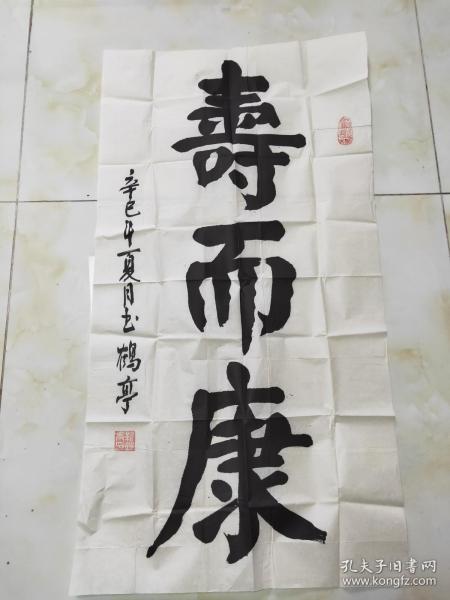 壽而康
辛巳年夏月书鹤亭
孔夫子旧书网
www.kongfz.com